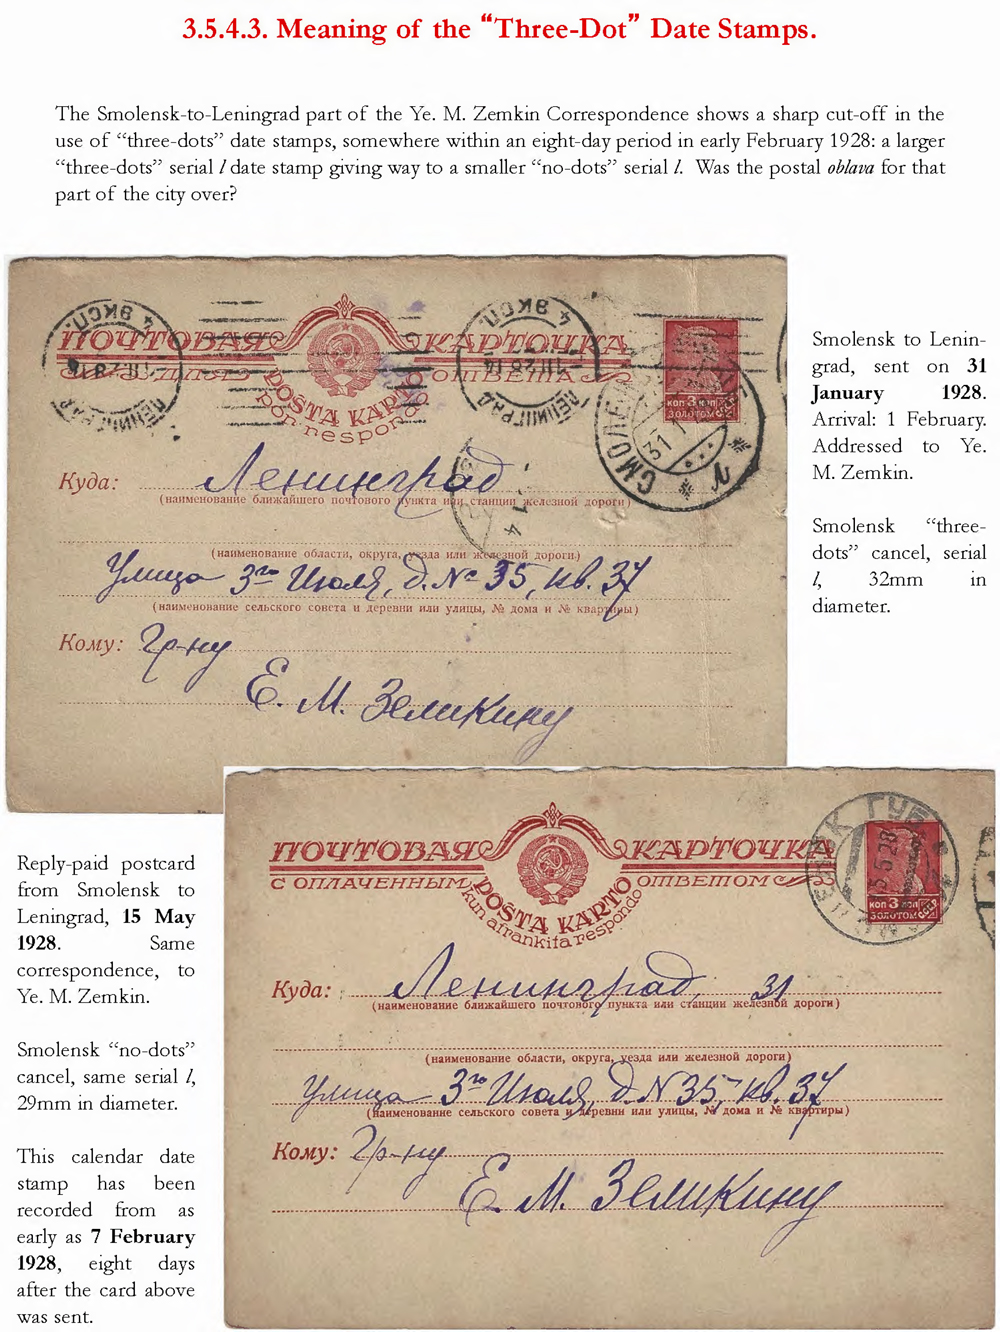 3.5.4.3. Meaning of the “Three-Dot” Date Stamps.
The Smolensk-to-Leningrad part of the Ye. M. Zemkin Correspondence shows a sharp cut-off in the
use of “three-dots” date stamps, somewhere within an eight-day period in early February 1928: a larger
“three-dots” serial l date stamp giving way to a smaller “no-dots” serial l. Was the postal oblava for that
part of the city over?
4 ЭКСП.
4 ЭКСП.
ПОЧТОВАЯ КАРТОЧКА
ДЛЯ ОТВЕТА
POŜTA KARTO
por respondo
КОП 3 КОП
ЗОЛОТОМ
-1.II.28.14
ЛЕНИНГРАД
ЛЕНИНГРАД
СМОЛЕН
31.1
Куда: Ленинград
(наименование ближайшего почтового пункта или станции железной дороги)
(наименование области, округа, уезда или железной дороги.)
Улица 3го Июля, д. № 35, кв. 37
(наименование сельского совета и деревни или улицы, № дома и № квартиры)
Кому: Гр-ну
Е. М. Земкину
Smolensk to Lenin-
grad, sent on 31
January 1928.
Arrival: 1 February.
Addressed to Ye.
M. Zemkin.
Smolensk “three-
dots” cancel, serial
l, 32mm in
diameter.
Reply-paid postcard
from Smolensk to
Leningrad, 15 May
1928. Same
correspondence, to
Ye. M. Zemkin.
Smolensk “no-dots”
cancel, same serial l,
29mm in diameter.
This calendar date
stamp has been
recorded from as
early as 7 February
1928, eight days
after the card above
was sent.
ГУБ
5.28
ПОЧТОВАЯ КАРТОЧКА
С ОПЛАЧЕННЫМ ОТВЕТОМ
POŜTA KARTO
kun afrankita respondo
КОП 3 КОП
ЗОЛОТОМ
Куда: Ленинград, 31
(наименование ближайшего почтового пункта или станции железной дороги)
(наименование области, округа, уезда или железной дороги)
Улица 3го Июля, д. N 35, кв. 37
(наименование сельского совета и деревни или улицы, № дома и № квартиры)
Кому: Гр-ну
Е. М. Земкину